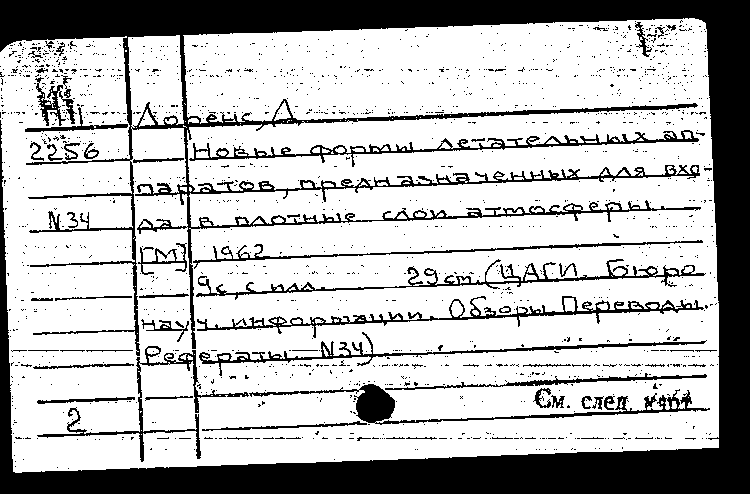 ПП Лоренс, Д.
2256 Новые формы летательных ап-
паратов, предназначенных для вхо-
N34 да в плотные слои атмосферы.
[М], 1962
9с, с илл. 29 см. (ЦАГИ. Бюро
науч. информации. Обзоры. Переводы.
Рефераты. N34)
2 См. след. карт